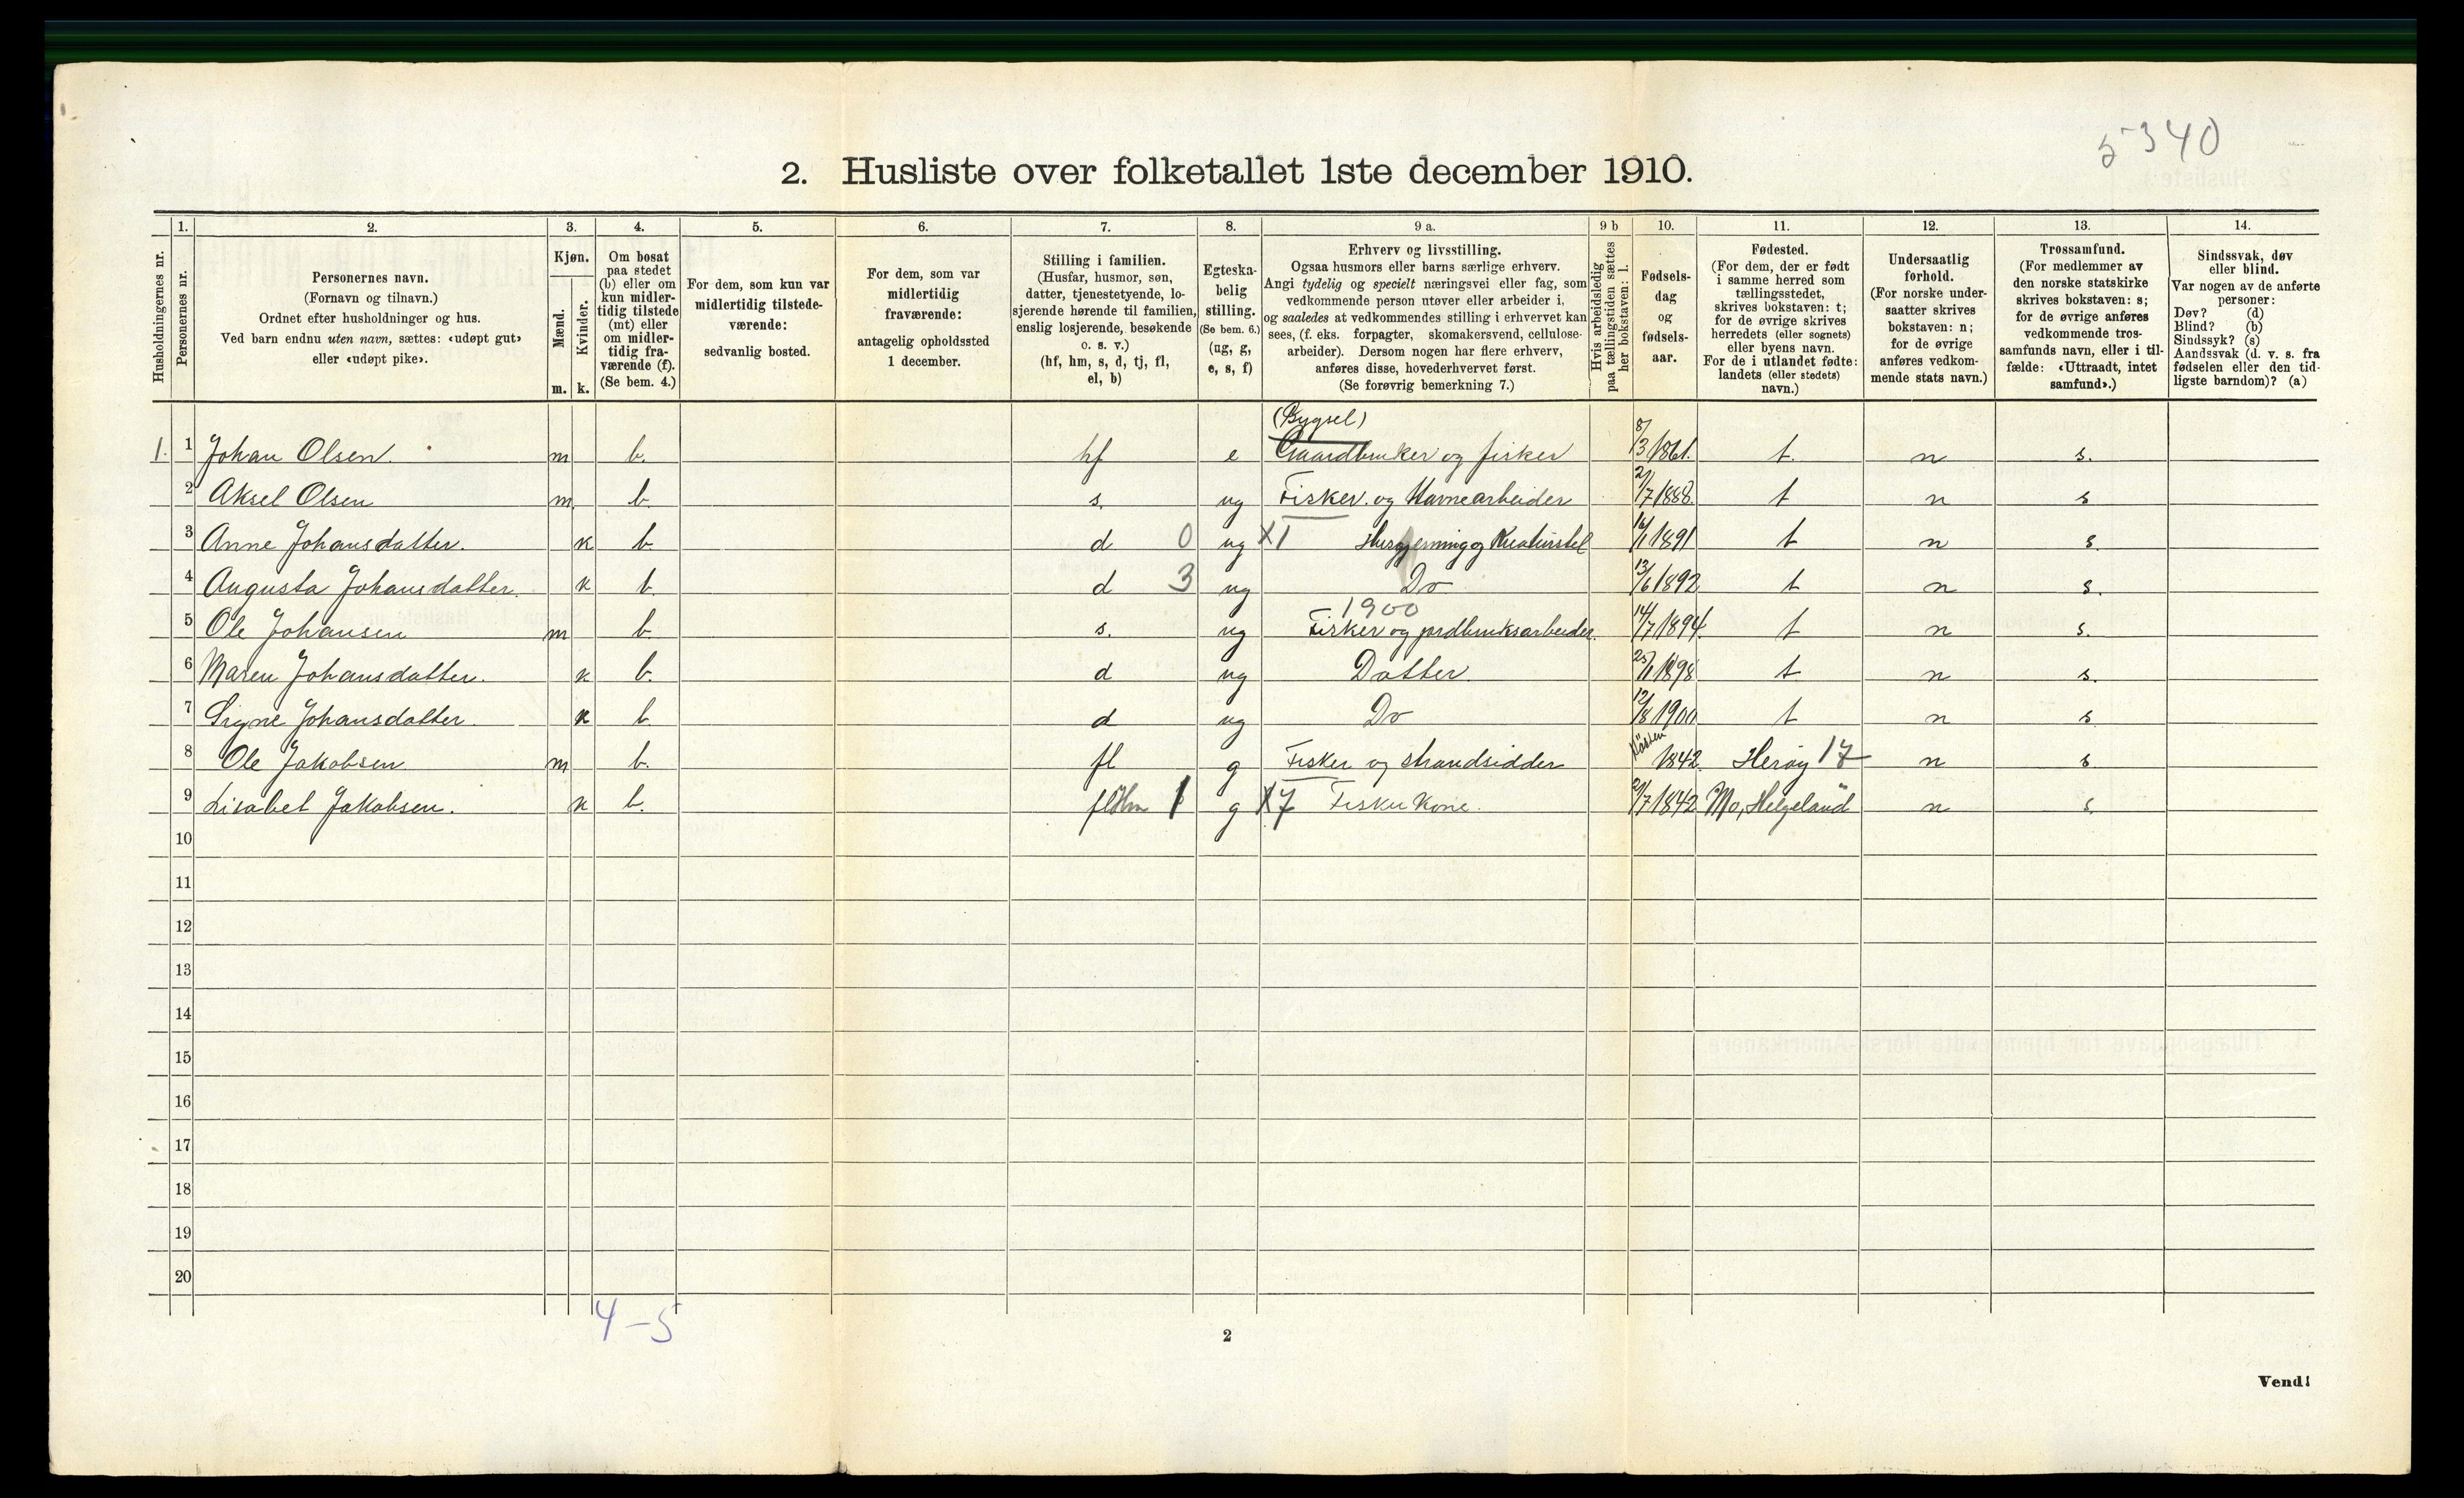 5340
2. Husliste over folketallet 1ste december 1910.
Husholdningernes nr.
1.
Personernes nr.
2.
Personernes navn.
(Fornavn og tilnavn.)
Ordnet efter husholdninger og hus.
Ved barn endnu uten navn, sættes: «udøpt gut»
eller «udøpt pike».
3.
Kjøn.
Mænd.
Kvinder.
m. k.
4.
Om bosat
paa stedet
(b) eller om
kun midler-
tidig tilstede
(mt) eller
om midler-
tidig fra-
værende (f).
(Se bem. 4.)
5.
For dem, som kun var
midlertidig tilstede-
værende:
sedvanlig bosted.
6.
For dem, som var
midlertidig
fraværende:
antagelig opholdssted
1 december.
7.
Stilling i familien.
(Husfar, husmor, søn,
datter, tjenestetyende, lo-
sjerende hørende til familien,
enslig losjerende, besøkende
o. s. v.)
(hf, hm, s, d, tj, fl,
el, b)
8.
Egteska-
belig
stilling.
(Se bem. 6.)
(ug, g,
e, s, f)
9 a.
Erhverv og livsstilling.
Ogsaa husmors eller barns særlige erhverv.
Angi tydelig og specielt næringsvei eller fag, som
vedkommende person utøver eller arbeider i,
og saaledes at vedkommendes stilling i erhvervet kan
sees, (f. eks. forpagter, skomakersvend, cellulose-
arbeider). Dersom nogen har flere erhverv,
anføres disse, hovederhvervet først.
(Se forøvrig bemerkning 7.)
9 b
Hvis arbeidsledig
paa tællingstiden sættes
her bokstaven: l.
10.
Fødsels-
dag
og
fødsels-
aar.
11.
Fødested.
(For dem, der er født
i samme herred som
tællingsstedet,
skrives bokstaven: t;
for de øvrige skrives
herredets (eller sognets)
eller byens navn.
For de i utlandet fødte:
landets (eller stedets)
navn.)
12.
Undersaatlig
forhold.
(For norske under-
saatter skrives
bokstaven: n;
for de øvrige
anføres vedkom-
mende stats navn.)
13.
Trossamfund.
(For medlemmer av
den norske statskirke
skrives bokstaven: s;
for de øvrige anføres
vedkommende tros-
samfunds navn, eller i til-
fælde: «Uttraadt, intet
samfund».)
14.
Sindssvak, døv
eller blind.
Var nogen av de anførte
personer:
Døv? (d)
Blind? (b)
Sindssyk? (s)
Aandssvak (d. v. s. fra
fødselen eller den tid-
ligste barndom)? (a)
(Bygsel)
1. 1 Johan Olsen. m b. hf e Gaardbruker og fisker 8/3 1861. t. n s.
2 Aksel Olsen m. b. s. ug Fisker og Havnearbeider 2/7 1888. t n s
3 Anne Johansdatter. k b. d 0 ug X1 Husgjerning og Kreaturstel 16/1 1891 t n s.
4 Augusta Johansdatter. k b. d 3 ug Do 13/6 1892 t n s.
1900
5 Ole Johansen m b. s. ug Fisker og jordbruksarbeider. 14/7 1894. t n s.
6 Maren Johansdatter. k b. d ug Datter. 25/11 1898 t n s.
7 Signe Johansdatter. k b. d ug Do 12/8 1900 t n s
8 Ole Jakobsen m b. fl g Fisker og strandsidder Høsten 1842. Herøy 17 n s
9 Lisabet Jakobsen. k b. fl Hm 1 g X7 Fisker Kone. 21/7 1842 Mo, Helgeland n s.
10
11
12
13
14
15
16
17
18
19
20
4-5
2
Vend!